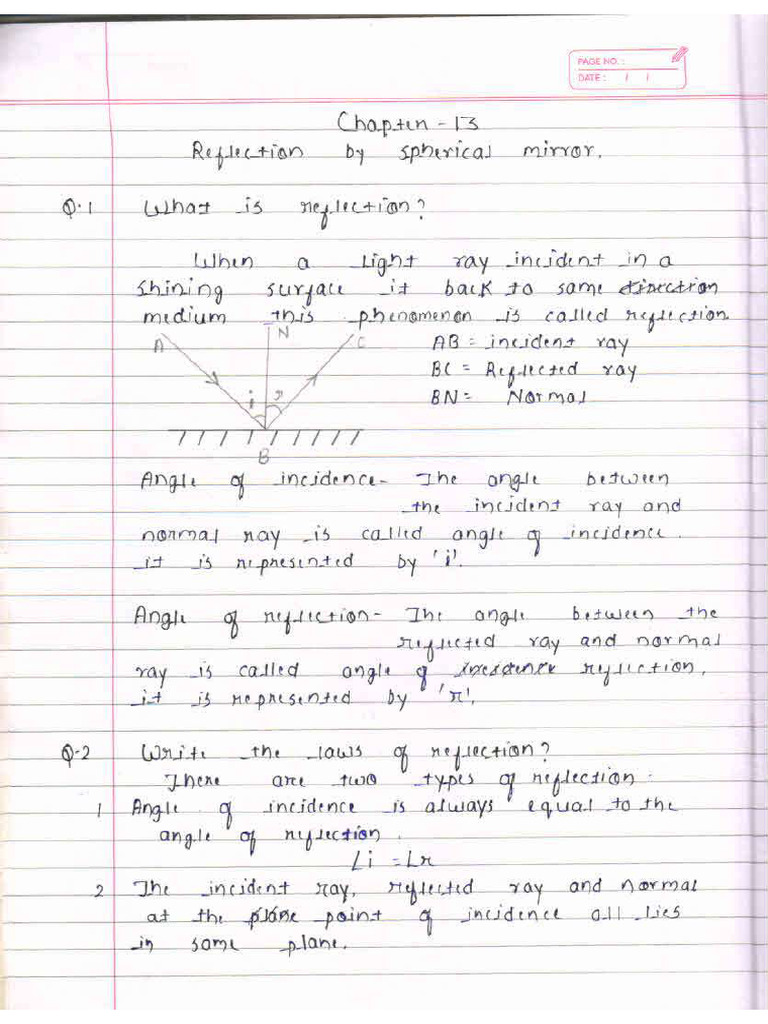 PAGE NO. :
DATE : / /
Chapter - 13
Reflection by spherical mirror.
Q.1 What is reflection?
When a light ray incident in a
shining surface it back to same direction
medium this phenomenon is called reflection.
A N C AB = incident ray
BC = Reflected ray
i r BN = Normal
B
Angle of incidence - The angle between
the incident ray and
normal ray is called angle of incidence.
it is represented by 'i'.
Angle of reflection - The angle between the
reflected ray and normal
ray is called angle of incidence reflection.
it is represented by 'r'.
Q.2 Write the laws of reflection?
There are two types of reflection.
1 Angle of incidence is always equal to the
angle of reflection.
∠i = ∠r
2 The incident ray, reflected ray and normal
at the plane point of incidence all lies
in same plane.